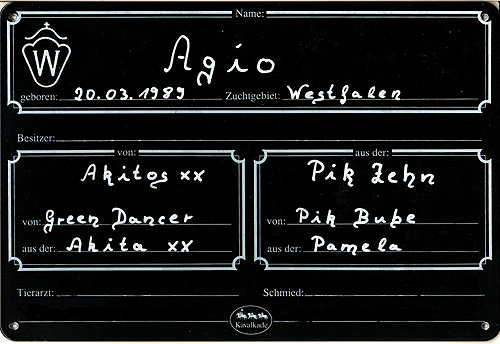 Name:
W
Agio
geboren: 20.03.1989 Zuchtgebiet: Westfalen
Besitzer:
von:
Akitos xx
von: Green Dancer
aus der: Akita xx
aus der:
Pik Zehn
von: Pik Bube
aus der: Pamela
Tierarzt:
Schmied:
Kavalkade